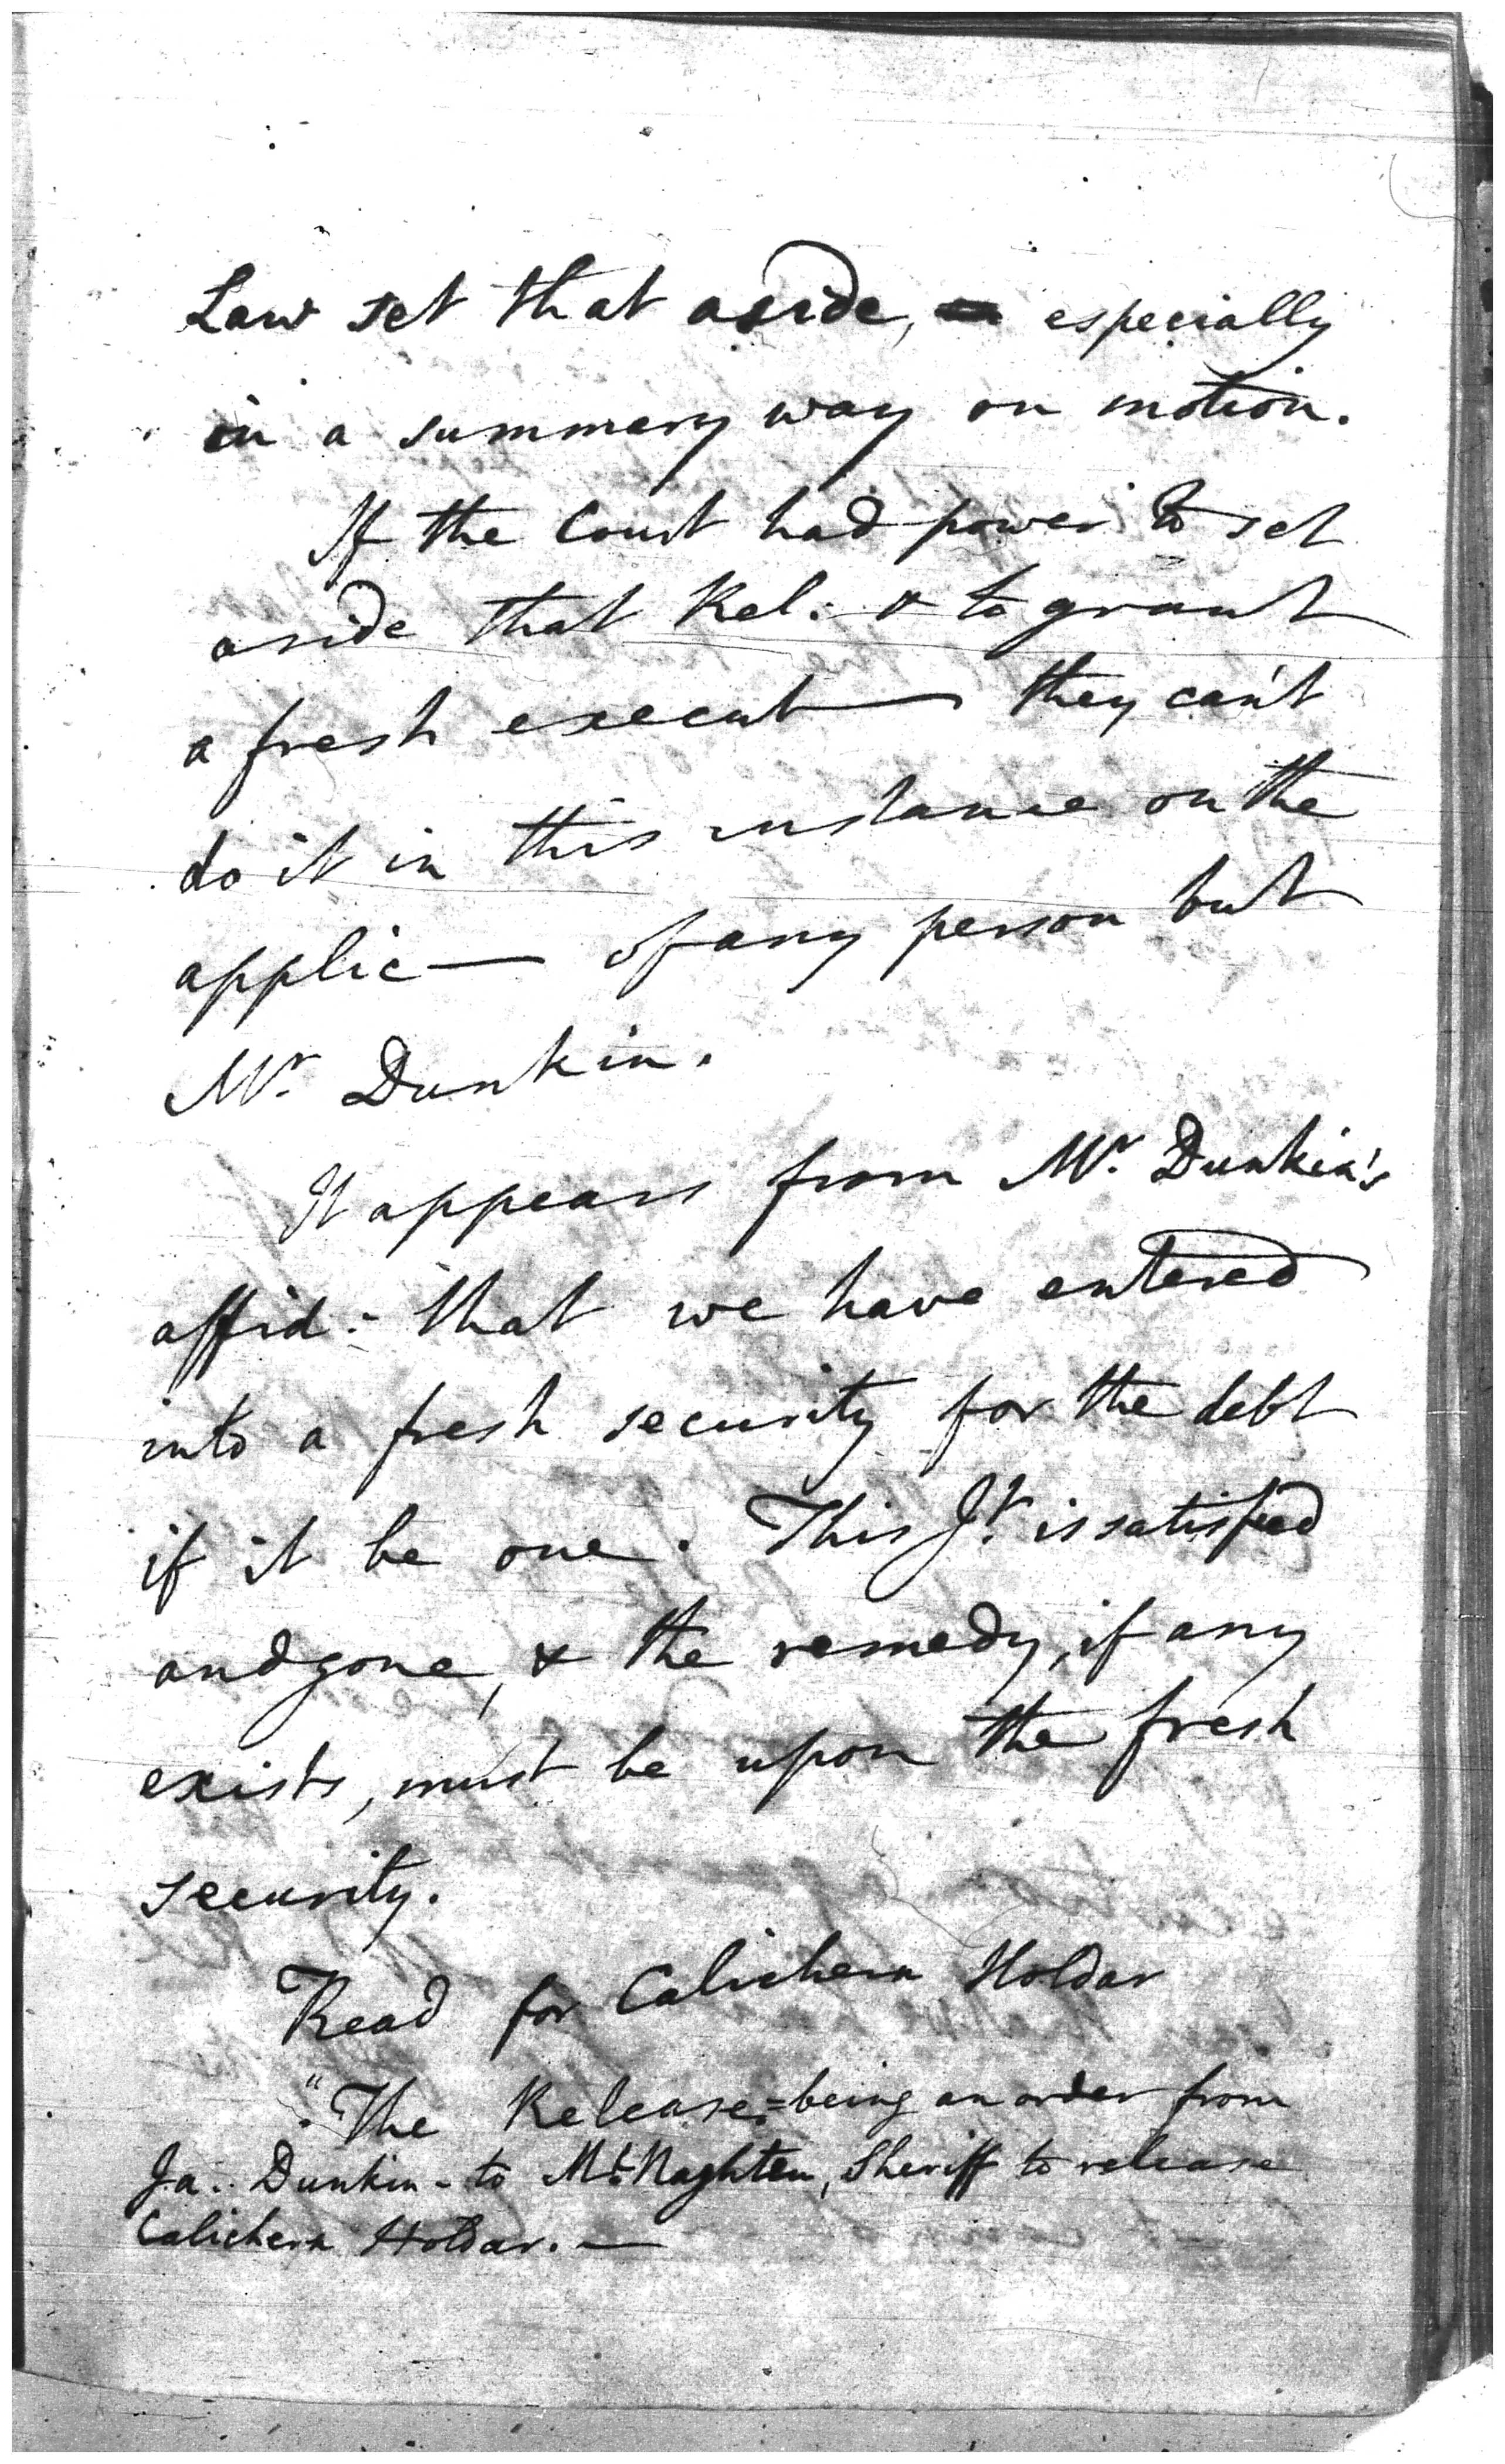 Law set that aside, especially
in a summary way on motion.
If the Court had power to set
aside that Rel: & to grant
a fresh execut— they can't
do it in this instance on the
applic— of any person but
Mr. Dunkin.
It appears from Mr. Dunkin's
affid: that we have entered
into a fresh security for the debt
if it be one. This Jt. is satisfied
and gone, & the remedy, if any
exists, must be upon the fresh
security.
Read for Calichern Holdar
"The Release=being an order from
Ja: Dunkin - to McNaghten, Sheriff to release
Calichern Holdar.—